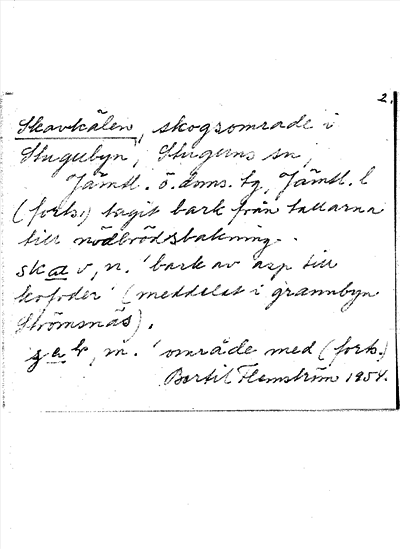 2.
Skavkälen, skogsområde i
Stugubyn, Stuguns sn,
Jämtl. ö. dms. tg, Jämtl. l
(forts.) tagit bark från tallarna
till nödbrödsbakning.
skav, n. 'bark av asp till
kofoder' (meddelat i grannbyn
Strömsnäs).
m. 'område med (forts.)
Bertil Flemström 1954.